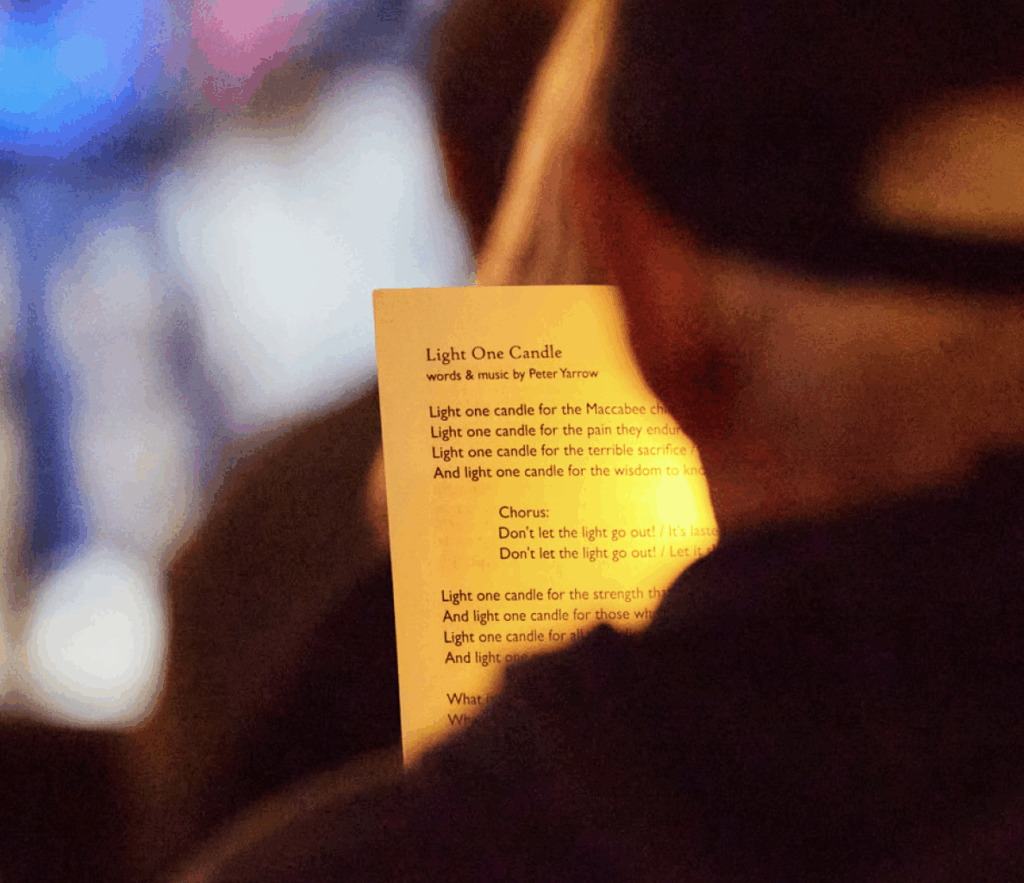 Light One Candle
words & music by Peter Yarrow
Light one candle for the Maccabee
Light one candle for the pain they
Light one candle for the terrible sacrifice
And light one candle for the wisdom to
Chorus:
Don't let the light go out! / It's
Don't let the light go out! / Let it
Light one candle for the strength
And light one candle for those
Light one candle for
And light one
What